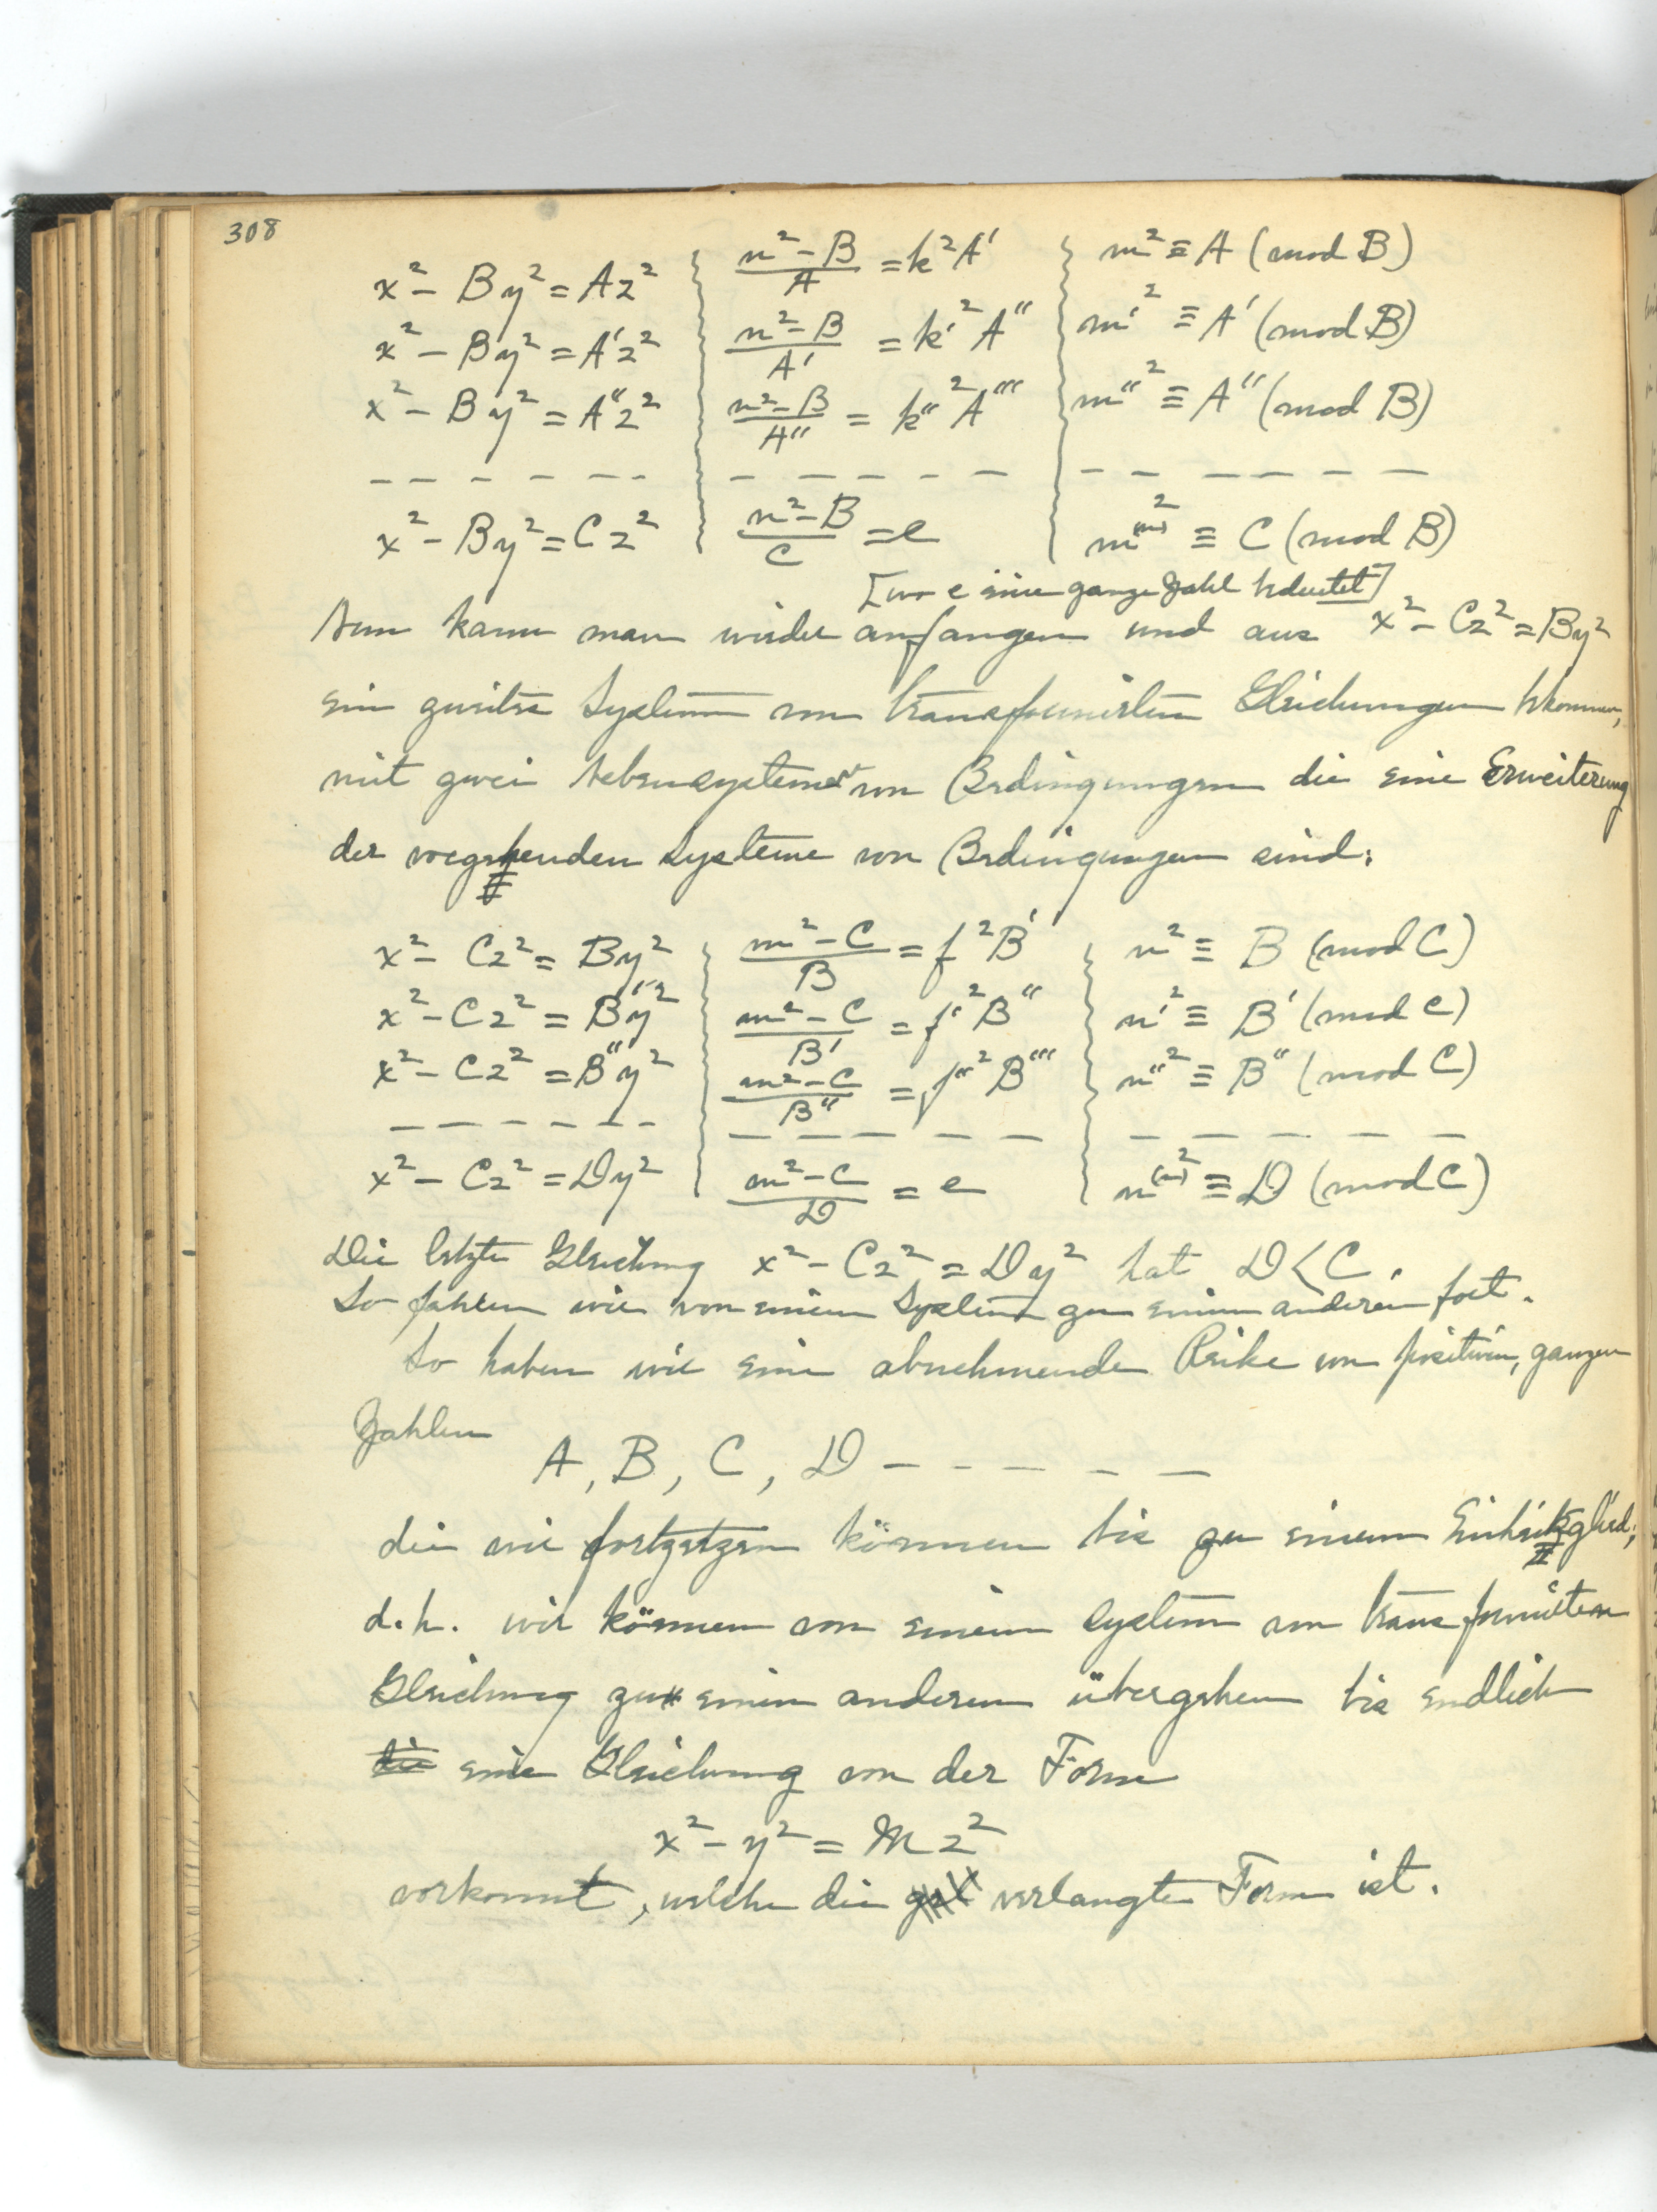 308
x² - By² = Az² | (n² - B)/A = k²A' | m² ≡ A (mod B)
x² - By² = A'z² | (n² - B)/A' = k'²A'' | m'² ≡ A' (mod B)
x² - By² = A''z² | (n² - B)/A'' = k''²A''' | m''² ≡ A'' (mod B)
– – – – – – | – – – – – – | – – – – – –
x² - By² = Cz² | (n² - B)/C = e | m⁽ⁿ⁾² ≡ C (mod B)
[wo e eine ganze Zahl bedeutet]
Nun kann man wieder anfangen und aus x² - Cz² = By²
ein zweites System von transformierten Gleichungen bekommen,
mit zwei Nebensystemen von Bedingungen die eine Erweiterung
der vorgehenden Systeme von Bedingungen sind:
x² - Cz² = By² | (m² - C)/B = f²B' | n² ≡ B (mod C)
x² - Cz² = B'y² | (m² - C)/B' = f'²B'' | n'² ≡ B' (mod C)
x² - Cz² = B''y² | (m² - C)/B'' = f''²B''' | n''² ≡ B'' (mod C)
– – – – – – | – – – – – – | – – – – –
x² - Cz² = Dy² | (m² - C)/D = e | n⁽ⁿ⁾² ≡ D (mod C)
Die letzte Gleichung x² - Cz² = Dy² hat D < C.
So fahren wir von einem System zu einem anderen fort.
So haben wir eine abnehmende Reihe von positiven, ganzen
Zahlen
A, B, C, D – – – – –
die wir fortsetzen können bis zu einem Einheitsglied;
d.h. wir können von einem System von transformierten
Gleichung zu einem anderen übergehen bis endlich
eine Gleichung von der Form
x² - y² = Mz²
vorkommt, welche die verlangte Form ist.